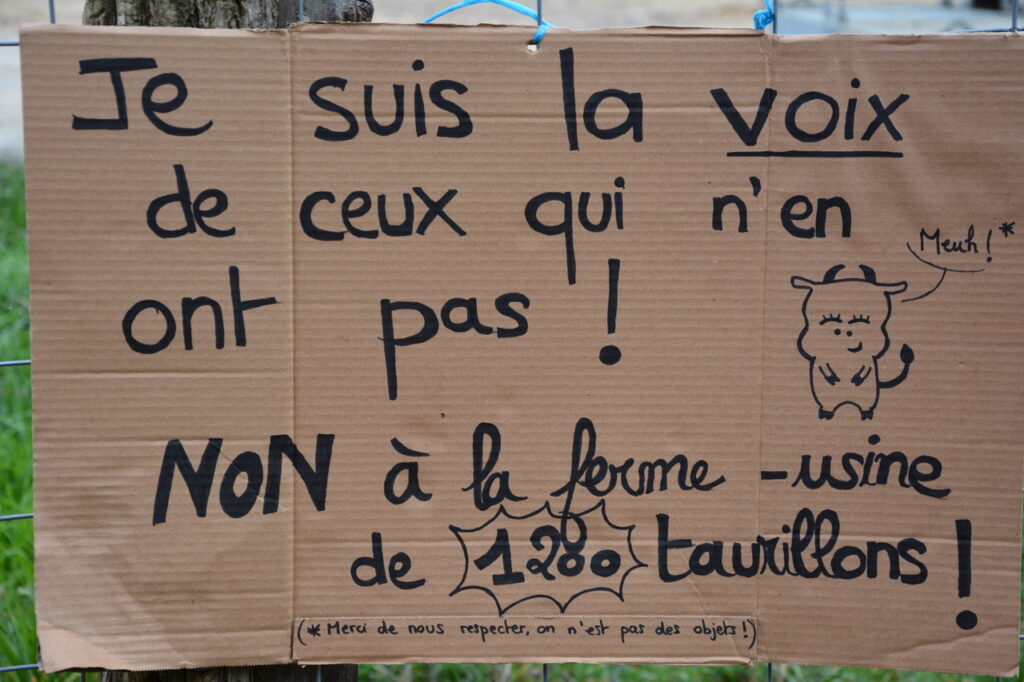 Je suis la voix
de ceux qui n'en
ont pas !
Meuh ! *
NON à la ferme-usine
de 1200 taurillons !
(* Merci de nous respecter, on n'est pas des objets !)